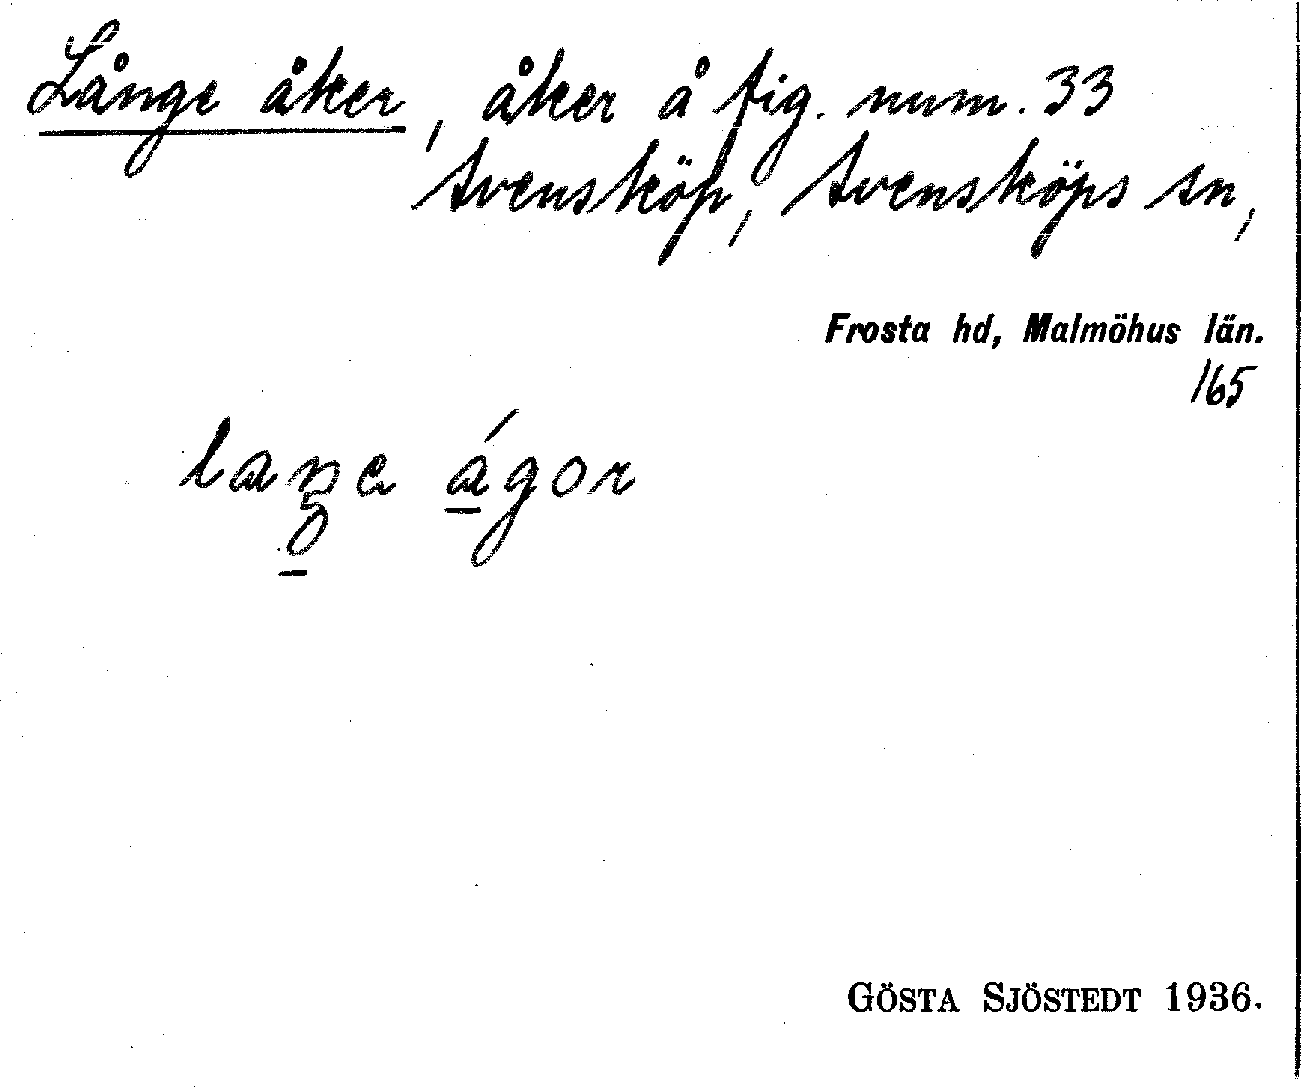 Långe åker, åker å fig. num. 33
Svensköp, Svensköps sn,
Frosta hd, Malmöhus län.
165
laŋe ágor
GÖSTA SJÖSTEDT 1936.